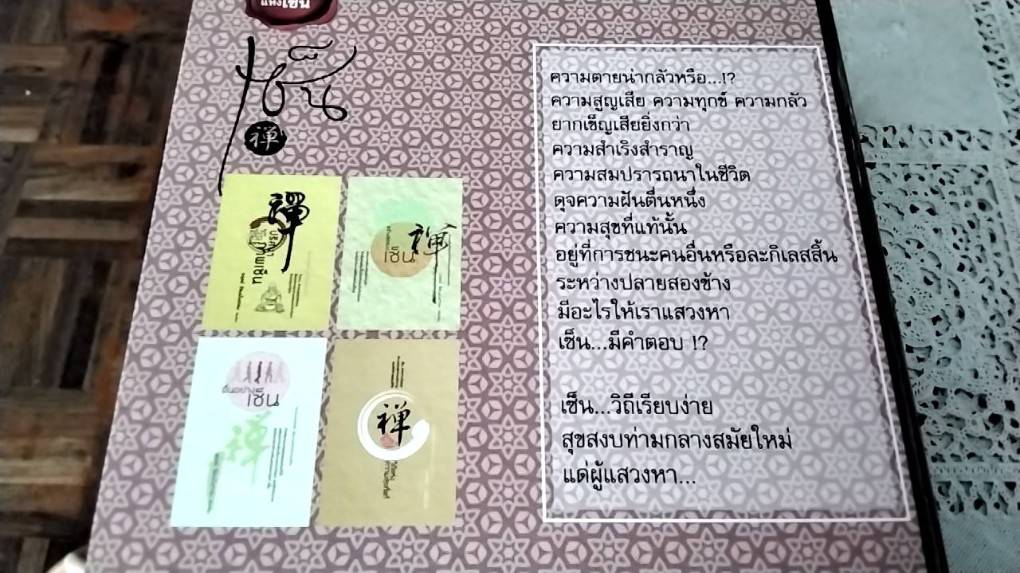 แห่งเซน
เซ็น
禅
禪
ปรัชญา
禅
เซน
ยืนอย่าง
เซน
禅
禅
ความตายน่ากลัวหรือ...!?
ความสูญเสีย ความทุกข์ ความกลัว
ยากเข็ญเสียยิ่งกว่า
ความสำเริงสำราญ
ความสมปรารถนาในชีวิต
ดุจความฝันตื่นหนึ่ง
ความสุขที่แท้นั้น
อยู่ที่การชนะคนอื่นหรือละกิเลสสิ้น
ระหว่างปลายสองข้าง
มีอะไรให้เราแสวงหา
เซ็น...มีคำตอบ !?
เซ็น...วิถีเรียบง่าย
สุขสงบท่ามกลางสมัยใหม่
แด่ผู้แสวงหา...